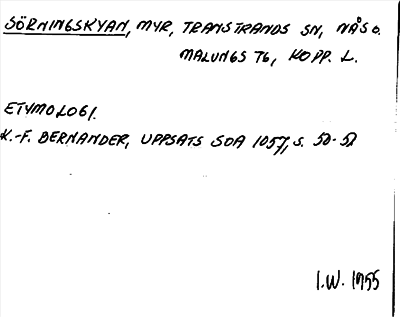 SÖRNINGSKYAN, MYR, TRANSTRANDS SN, NÅS O.
MALUNGS TG, KOPP. L.
ETYMOLOGI.
K.-F. BERNANDER, UPPSATS SOA 1057, S. 50-51
I.W. 1955